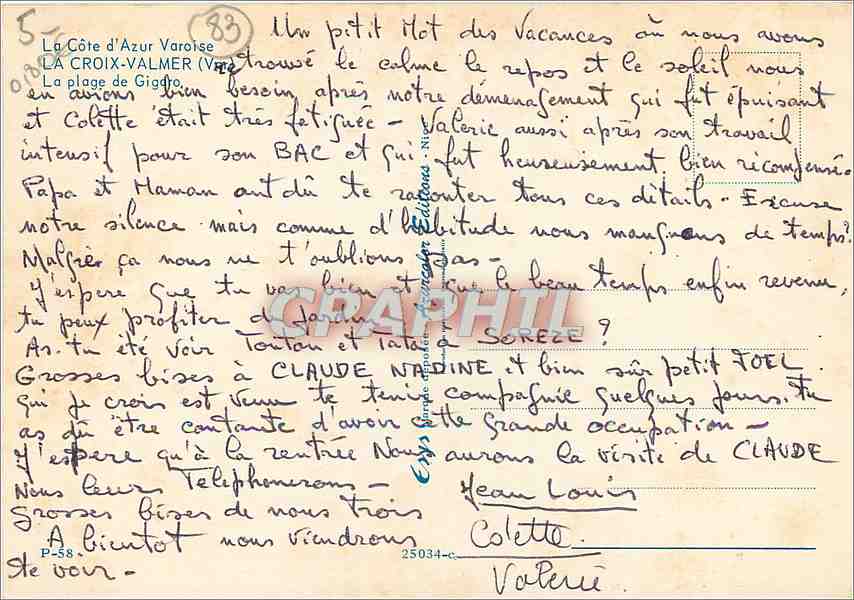 5-
0,80€
83
La Côte d'Azur Varoise
LA CROIX-VALMER (Var)
La plage de Gigaro
Un petit Mot des Vacances où nous avons
retrouvé le calme le repos et le soleil nous
en avions bien besoin après notre déménagement qui fut épuisant
et Colette était très fetiguée - Valerie aussi après son travail
intensif pour son BAC et qui fut heureusement bien récompensé.
Papa et Maman ont dû te raconter tous ces détails. Excuse
notre silence mais comme d'habitude nous manquons de temps?
Malgrer ça nous ne t'oublions pas -
J'espere que tu vas bien et que le beau temps enfin revenu,
tu peux profiter du Jardin
As-tu été voir Tonton et Tata à SOREZE ?
Grosses bises à CLAUDE NADINE et bien sûr petit JOEL
qui je crois est venu te tenir compagnie quelques jours. tu
as dû être contante d'avoir cette grande occupation -
J'espere qu'à la rentrée Nous aurons la visite de CLAUDE
Nous leurs Telephonerons -
Grosses bises de nous trois
A bientot nous viendrons
te voir -
Jean Louis
Colette
Valerie
P-58
25034-c
Marque déposée Francolor Editions - Nice
GRAPHIL